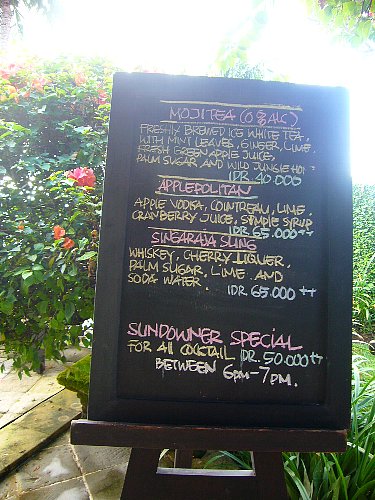 MOJITEA (0% ALC)
FRESHLY BREWED ICE WHITE TEA,
WITH MINT LEAVES, GINGER, LIME,
FRESH GREEN APPLE JUICE,
PALM SUGAR AND WILD JUNGLE HONEY
IDR 40.000
APPLEPOLITAN
APPLE VODKA, COINTREAU, LIME,
CRANBERRY JUICE, SIMPLE SYRUP
IDR 65.000++
SINGARAJA SLING
WHISKEY, CHERRY LIQUER,
PALM SUGAR, LIME AND
SODA WATER.
IDR 65.000 ++
SUNDOWNER SPECIAL
FOR All COCKTAIL IDR. 50.000++
BETWEEN 6pm-7pm.